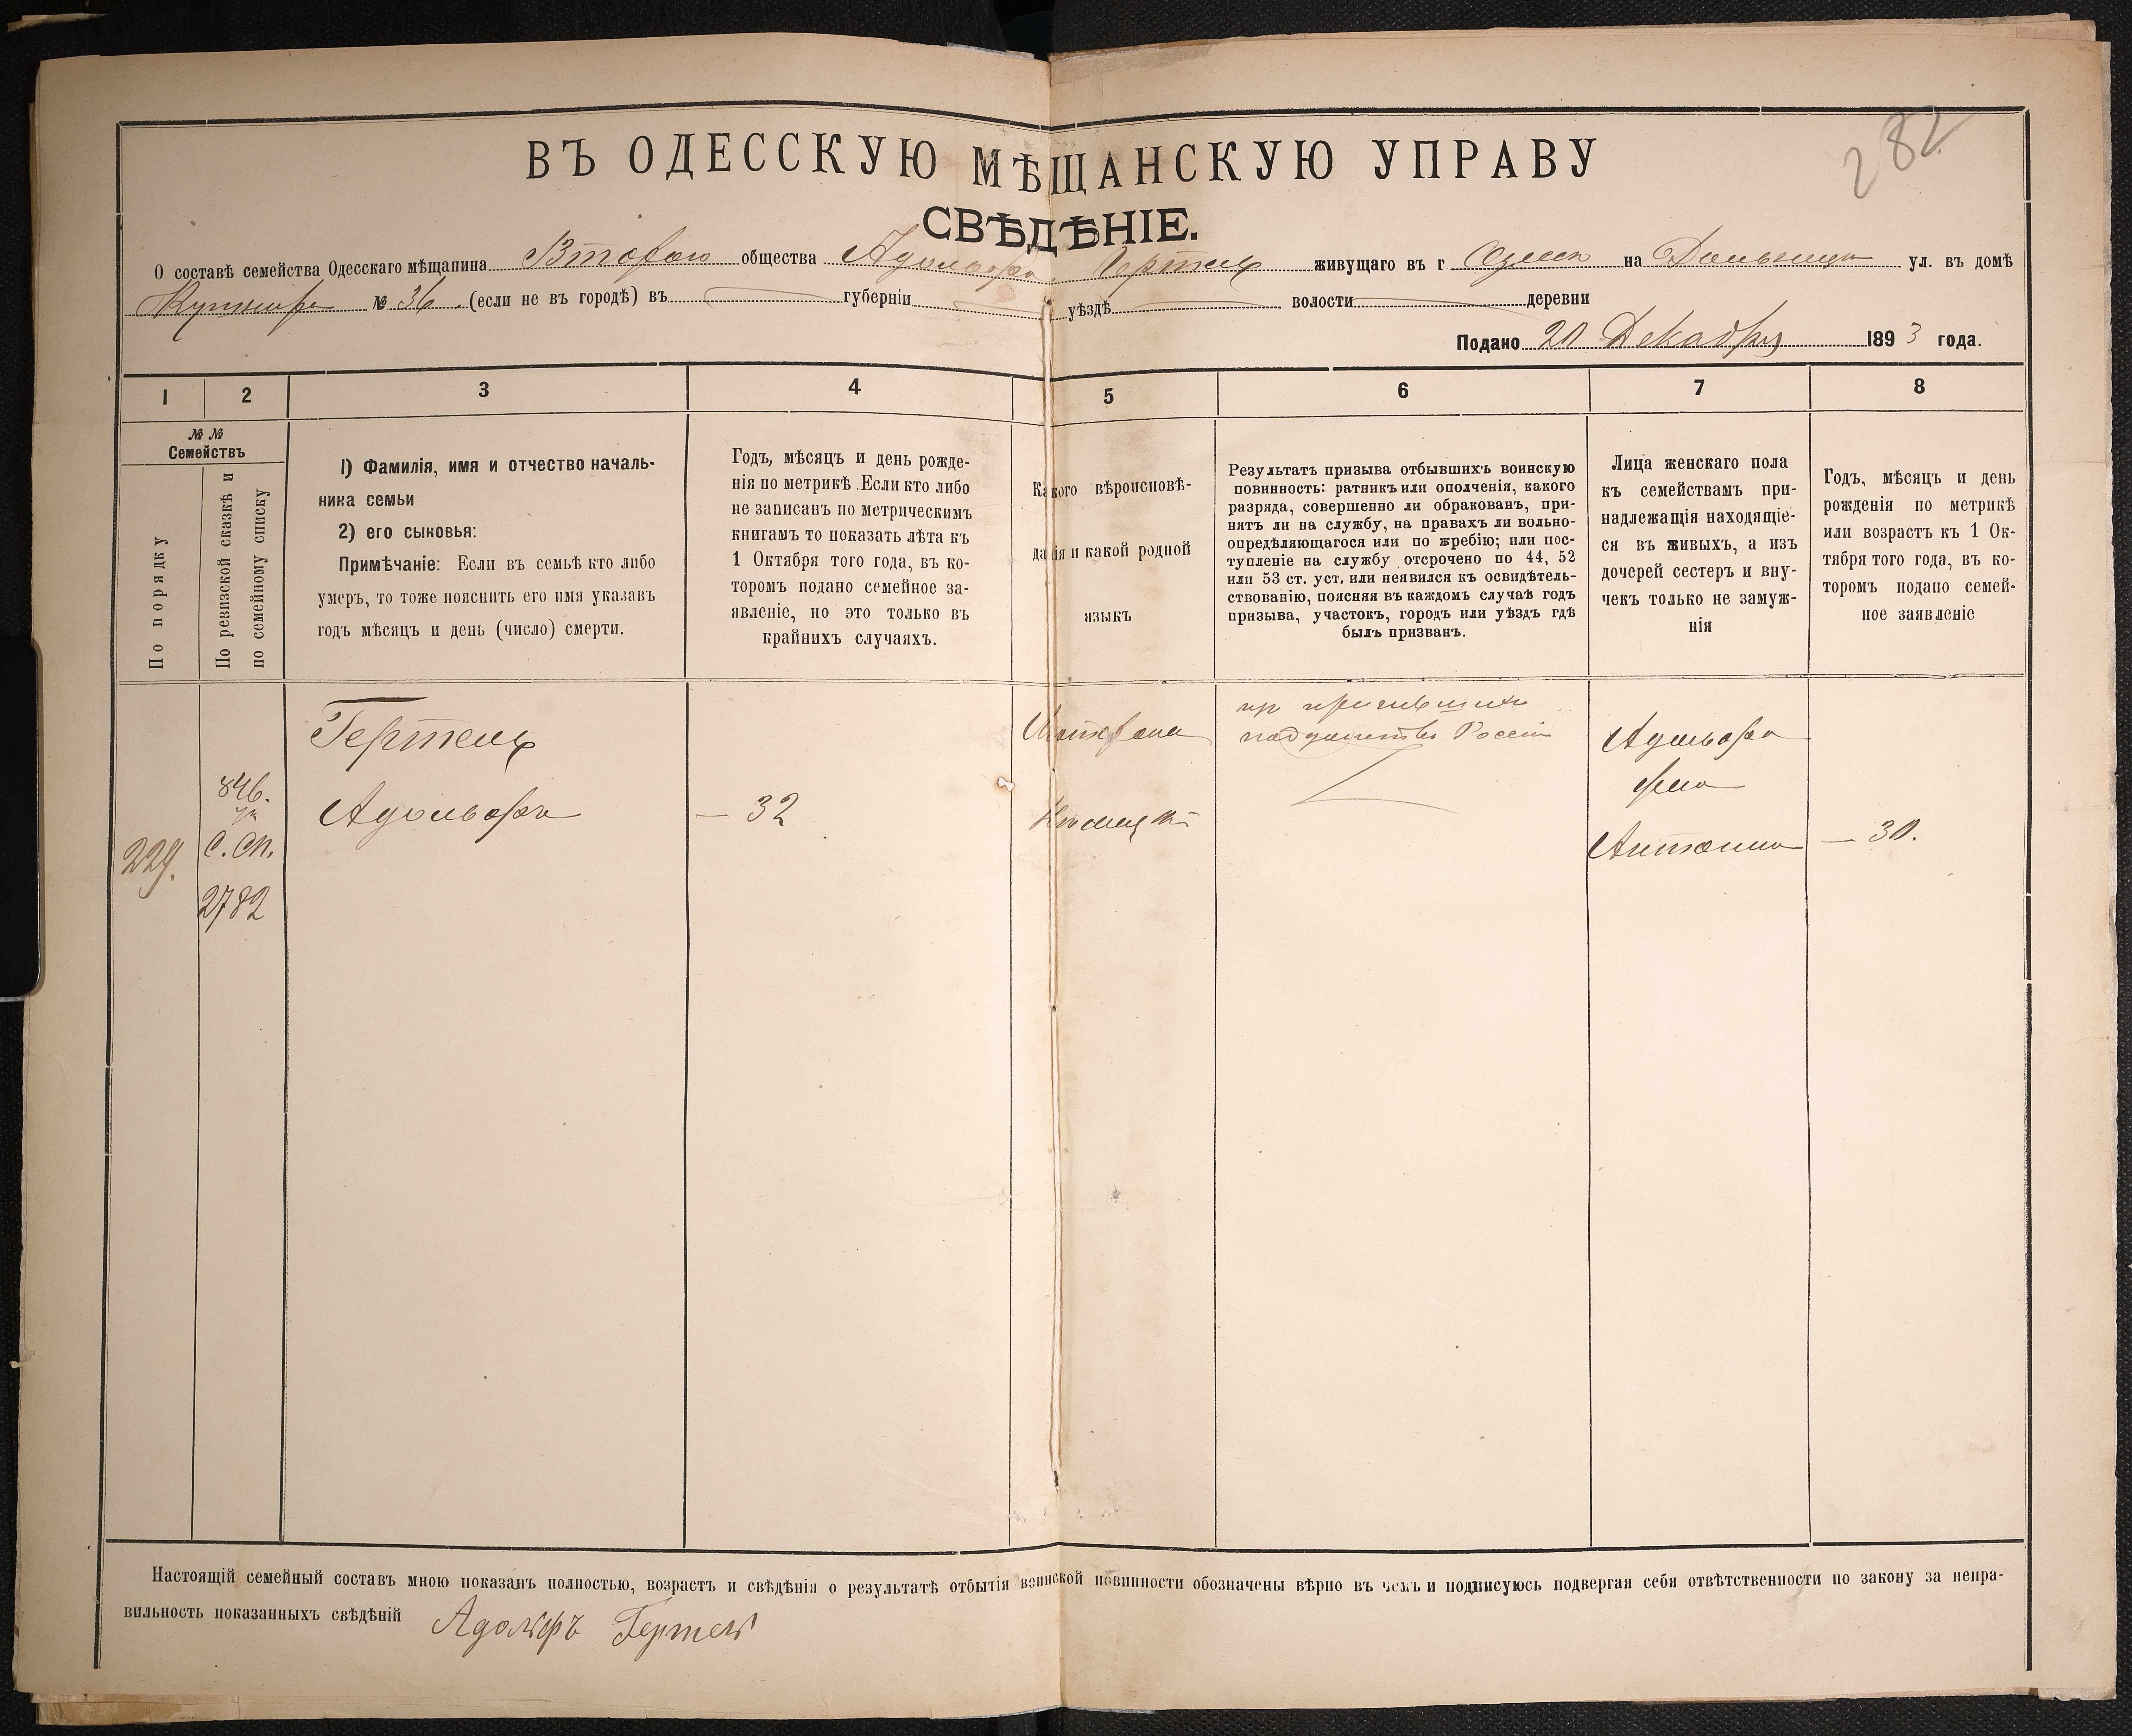 282
ВЪ ОДЕССКУЮ МѢЩАНСКУЮ УПРАВУ
СВѢДѢНІЕ.
О составѣ семейства Одесскаго мѣщанина Второго общества Адольфа Гертель живущаго въ г Одессѣ на ул. въ домѣ
№ 36. (если не въ городѣ) въ губерніи уѣздѣ волости деревни
Подано 20 Декабря 1893 года.
1 2 3 4 5 6 7 8
№ №
Семействъ
По порядку
По ревизской сказкѣ и
по семейному списку
1) Фамилія, имя и отчество началь-
ника семьи
2) его сыновья:
Примѣчаніе: Если въ семьѣ кто либо
умеръ, то тоже пояснить его имя указавъ
годъ мѣсяцъ и день (число) смерти.
Годъ, мѣсяцъ и день рожде-
нія по метрикѣ. Если кто либо
не записанъ по метрическимъ
книгамъ то показать лѣта къ
1 Октября того года, въ ко-
торомъ подано семейное за-
явленіе, но это только въ
крайнихъ случаяхъ.
Какого вѣроисповѣ-
данія и какой родной
языкъ
Результатъ призыва отбывшихъ воинскую
повинность: ратникъ или ополченія, какого
разряда, совершенно ли обракованъ, при-
нятъ ли на службу, на правахъ ли вольно-
опредѣляющагося или по жребію; или пос-
тупленіе на службу отсрочено по 44, 52
или 53 ст. уст, или неявился къ освидѣтель-
ствованію, поясняя въ каждомъ случаѣ годъ
призыва, участокъ, городъ или уѣздъ гдѣ
былъ призванъ.
Лица женскаго пола
къ семействамъ при-
надлежащія находящіе-
ся въ живыхъ, а изъ
дочерей сестеръ и вну-
чекъ только не замуж-
нія
Годъ, мѣсяцъ и день
рожденія по метрикѣ
или возрастъ къ 1 Ок-
тября того года, въ ко-
торомъ подано семей-
ное заявленіе
229.
846.
с. сп.
2782
Гертель
Адольфъ
— 32
подданство Россіи
Адольфа
жена
Антонина
— 30.
Настоящій семейный составъ мною показанъ полностью, возрастъ и свѣдѣнія о результатѣ отбытія воинской повинности обозначены вѣрно въ чемъ и подписуюсь подвергая себя отвѣтственности по закону за непра-
вильность показанныхъ свѣдѣній Адольфъ Гертель